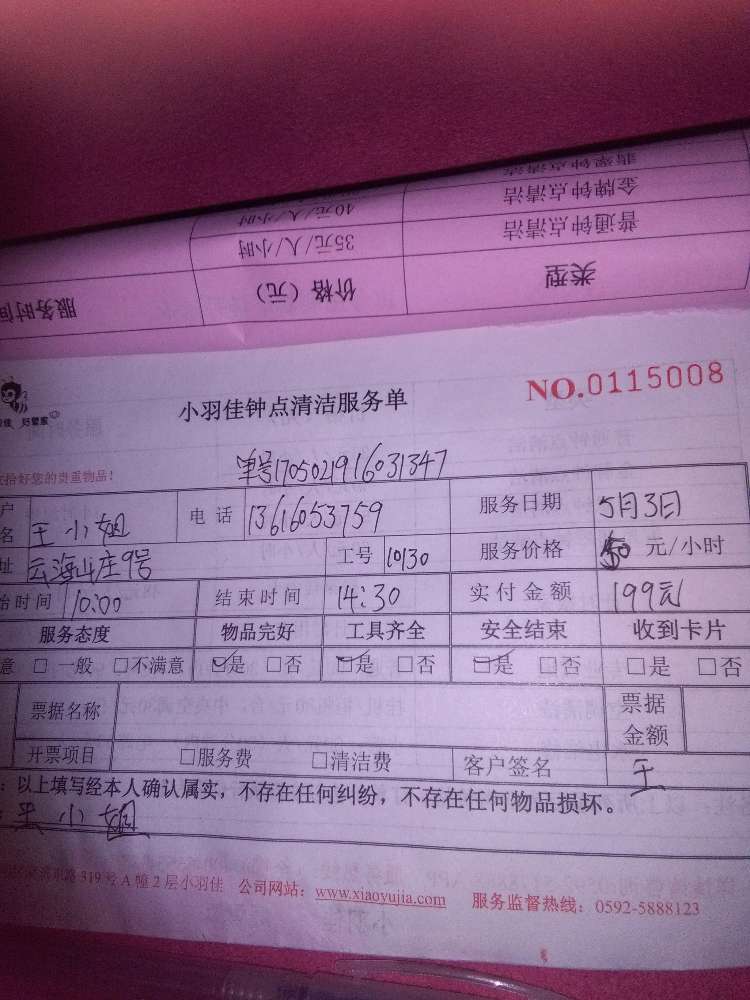 翡翠钟点清洁
金牌钟点清洁 40元/人/小时
普通钟点清洁 35元/人/小时
类型 价格（元） 服务时间
NO.0115008
小羽佳钟点清洁服务单
单号170502191603 1347
拾好您的贵重物品！
户名 王小姐 电话 13616053759 服务日期 5月3日
址 云海山庄9号 工号 10130 服务价格 50 元/小时
始时间 10:00 结束时间 14:30 实付金额 199元
服务态度 物品完好 工具齐全 安全结束 收到卡片
意 □一般 □不满意 ☑是 □否 ☑是 □否 ☑是 □否 □是 □否
票据名称 票据金额
开票项目 □服务费 □清洁费 客户签名 王
：以上填写经本人确认属实，不存在任何纠纷，不存在任何物品损坏。
王小姐
路319号A幢2层小羽佳 公司网站：www.xiaoyujia.com 服务监督热线：0592-5888123